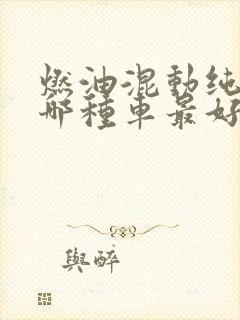 燃油混動纯
哪種車最好
與醉